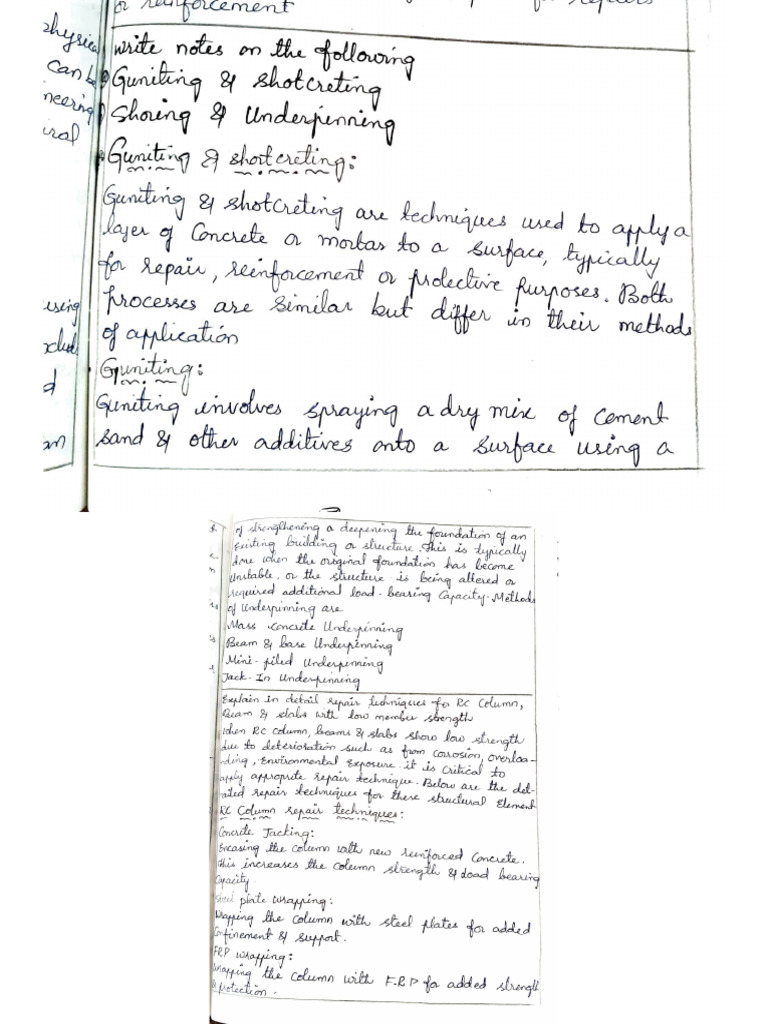 or reinforcement for repairs
physical
can be
neering
iral
using
d
write notes on the following
Guniting & shotcreting
Shoring & Underpinning
Guniting & shortcreting:
Guniting & shotcreting are techniques used to apply a
layer of Concrete or mortar to a surface, typically
for repair, reinforcement or protective purposes. Both
processes are similar but differ in their methods
of application
Guniting:
Guniting involves spraying a dry mix of cement
sand & other additives onto a surface using a
of strengthening a deepening the foundation of an
existing building or structure. This is typically
done when the original foundation has become
Unstable, or the structure is being altered or
required additional load-bearing Capacity. Methods
of Underpinning are
Mass concrete Underpinning
Beam & base Underpinning
Mini-piled Underpinning
Jack-In Underpinning
Explain in detail repair techniques for RC Column,
Beam & slabs with low member strength
When RC column, beams & slabs show low strength
due to deterioration such as from corrosion, overloa-
ding, Environmental Exposure. it is critical to
apply approprite repair technique. Below are the det-
ailed repair techniques for these structural Element
RC Column repair techniques:
Concrete Jacking:
Encasing the column with new reinforced concrete.
This increases the column strength & load bearing
Capacity
Steel plate wrapping:
Wrapping the column with steel plates for added
Confinement & support.
FRP wrapping:
Wrapping the column with F.R.P for added strength
& protection.